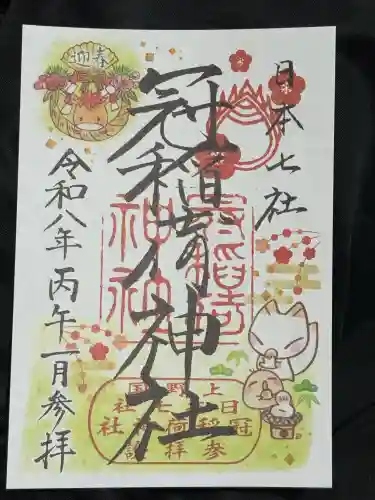 日本七社
冠稲荷神社
令和八年丙午一月参拝
迎春
冠稲荷
神社
上野国
日本七社
冠稲荷神社
参拝記